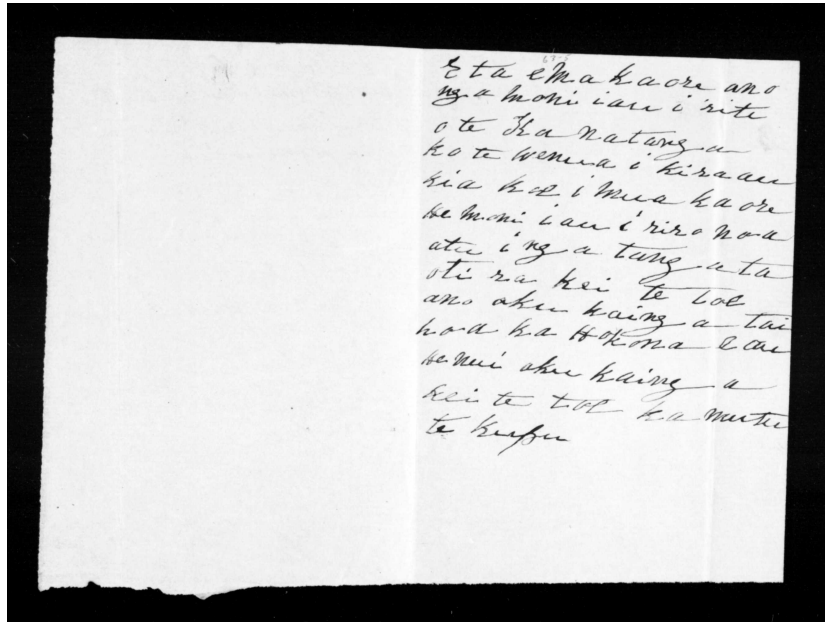 E ta e Ma kaore ano
nga moni i au i rite
o te Ka natanga
ko te wenua i kiraau
kia koe i mua kaore
He moni i au i riro noa
atu i nga tangata
oti ra kei te toe
ano oku kainga tai
hoa ka Hokona e au
He nui oku kainga
kei te toe ka mutu
te kupu